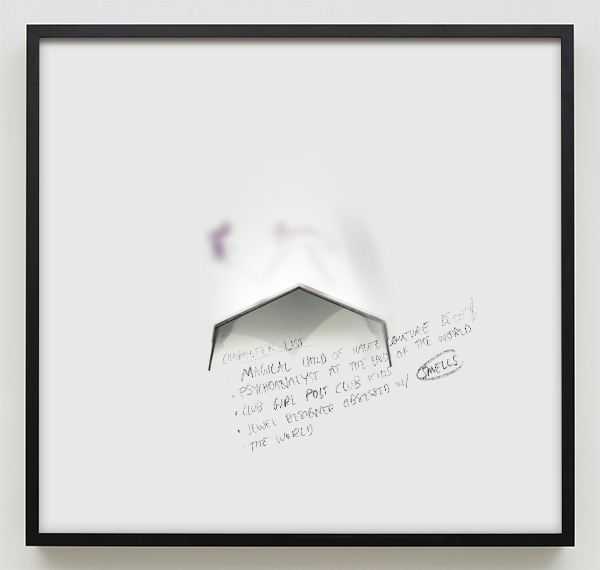 CHARACTER LIST
MAGICAL CHILD OF HAUTE COUTURE
• PSYCHOANALYST AT THE END OF THE WORLD
• CLUB GIRL POLT CLUB KIDS
• JEWEL DESIGNER OBSESSED W/ SMELLS
• THE WORLD